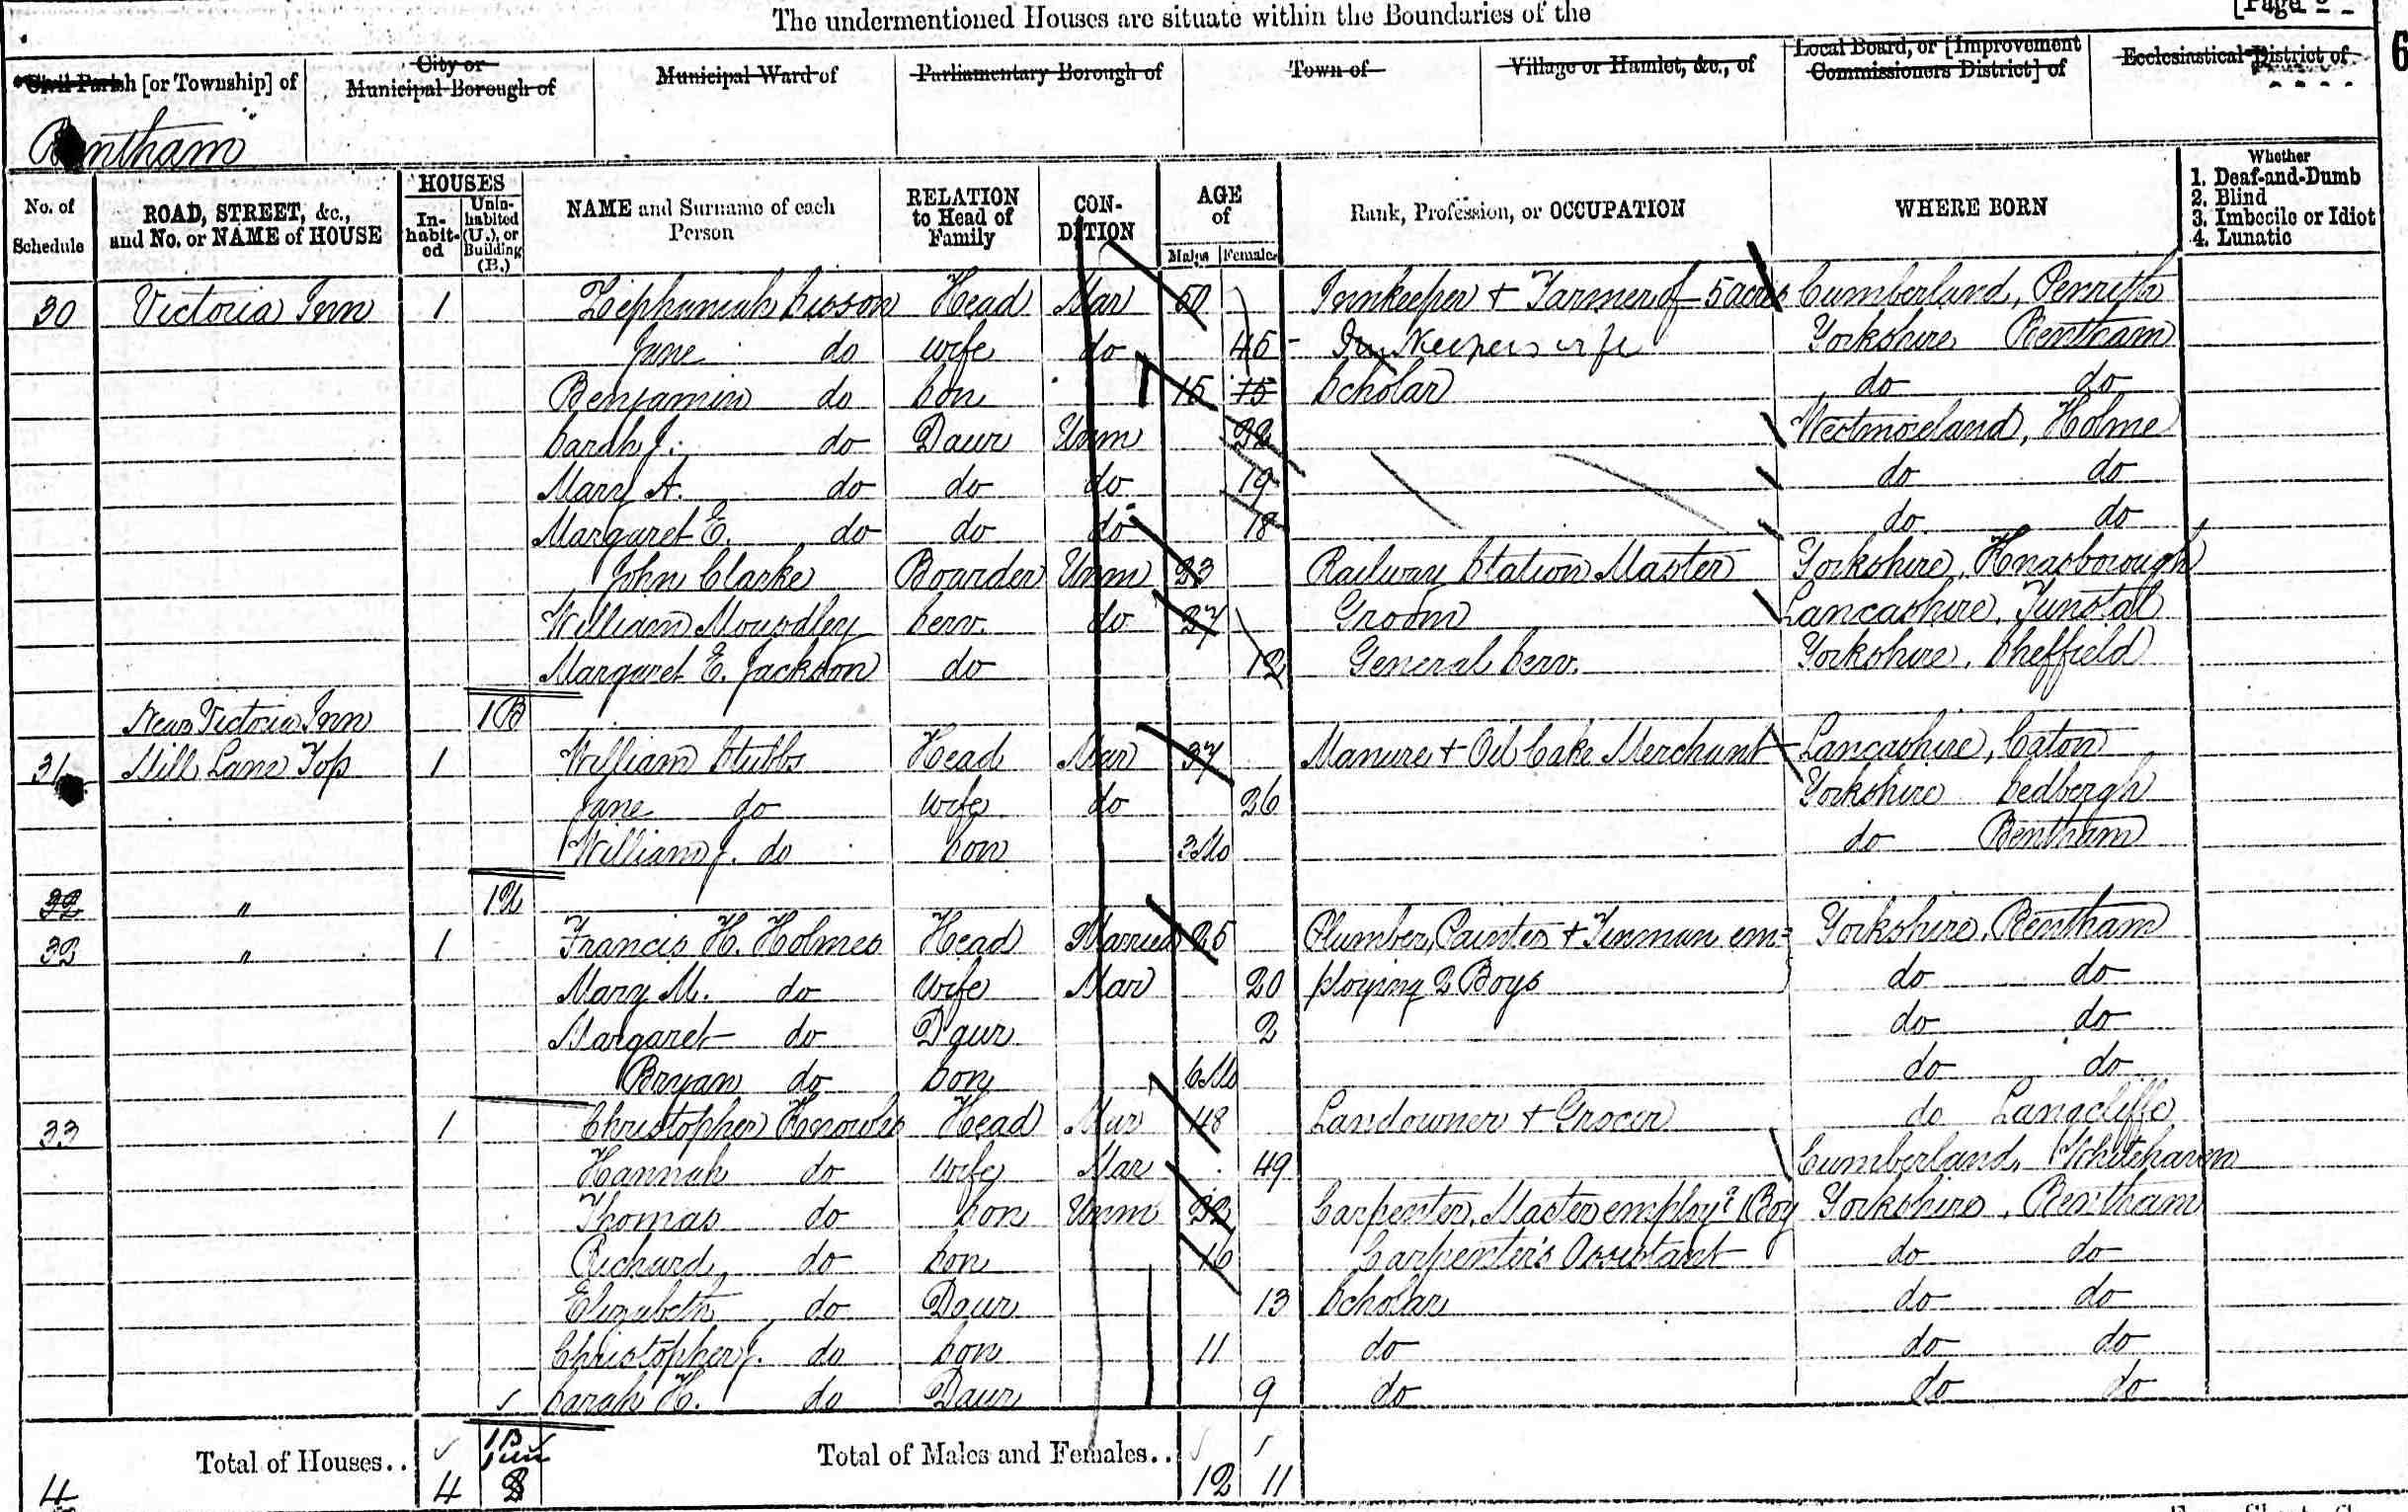 The undermentioned Houses are situate within the Boundaries of the
[Page
6
Civil Parish [or Township] of
City or Municipal Borough of
Municipal Ward of
Parliamentary Borough of
Town of
Village or Hamlet, &c., of
Local Board, or [Improvement Commissioners District] of
Ecclesiastical District of
Bentham
No. of Schedule
ROAD, STREET, &c., and No. or NAME of HOUSE
HOUSES
In-habit-ed
Unin-habited (U.), or Building (B.)
NAME and Surname of each Person
RELATION to Head of Family
CON-DITION
AGE of
Males Females
Rank, Profession, or OCCUPATION
WHERE BORN
Whether
1. Deaf-and-Dumb
2. Blind
3. Imbecile or Idiot
4. Lunatic
30 Victoria Inn 1 Zephaniah Sisson Head Mar 50 Innkeeper + Farmer of 5 acres Cumberland, Penrith
Jane do wife do 45 Inn Keepers wife Yorkshire Bentham
Benjamin do Son 15 15 Scholar do do
Sarah J. do Daur Unm 22 Westmoreland, Holme
Mary A. do do do 19 do do
Margaret E. do do do 18 do do
John Clarke Boarder Unm 23 Railway Station Master Yorkshire, Knasborough
William Serv. do 27 Groom Lancashire, Tunstal
Margaret E. Jackson do 12 General Serv. Yorkshire, Sheffield
Near Victoria Inn 1B
31 Mill Lane Top 1 William Stubbs Head Mar 37 Manure + Oil Cake Merchant Lancashire, Caton
Jane do wife do 26 Yorkshire Sedbergh
William J. do Son 3Mo do Bentham
32 " 1U
32 " 1 Francis H. Holmes Head Married 25 Plumber, Painter + Tinman em= Yorkshire, Bentham
Mary M. do wife Mar 20 ploying 2 Boys do do
Margaret do Daur 2 do do
Bryan do Son 6Mo do do
33 1 Christopher Knowles Head Mar 48 Landowner + Grocer do Langcliffe
Hannah do wife Mar 49 Cumberland, Whitehaven
Thomas do Son Unm 22 Carpenter, Master employg 1 Boy Yorkshire, Bentham
Richard do Son 16 Carpenter's Assistant do do
Elizabeth do Daur 13 Scholar do do
Christopher J. do Son 11 do do do
Sarah H. do Daur 9 do do do
4 Total of Houses.. 4 1B Total of Males and Females.. 12 11